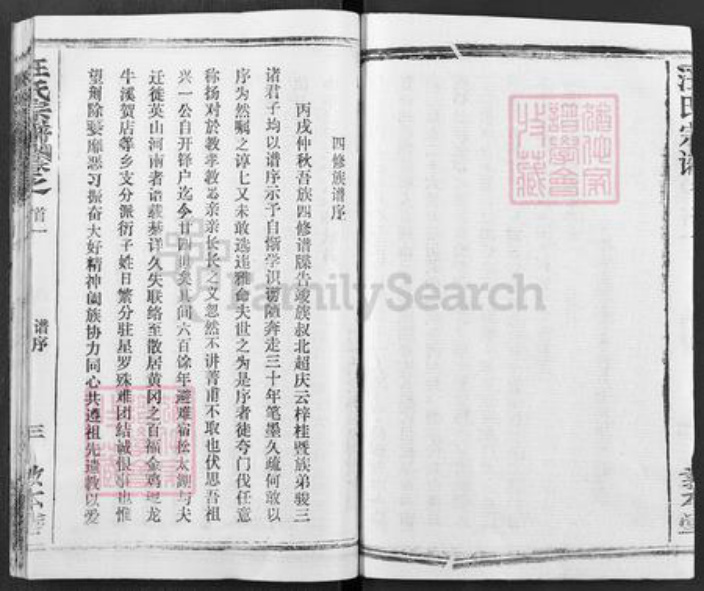 四修族谱序
丙戌仲秋吾族四修谱牒告竣族叔北超庆云梓桂暨族弟骏三
诸君子均以谱序示予自惭学识谫陋奔走三十年笔墨久疏何敢以
序为然嘱之谆七又未敢选违雅命夫世之为是序者徒夸门伐任意
称扬对於教孝教忠亲亲长长之义忽然不讲菁甫不取也伏思吾祖
兴一公自开锋户迄今廿四世矣其间六百馀年避难宿松太湖与夫
迁徙英山河南者谱载綦详久失联络至散居黄冈之百福金鸡
龙
牛溪贺店等乡支分派衍子姓日繁分驻星罗殊难团结诚恨事也惟
望荆除
靡恶习振奋大好精神阖族协力同心共遵祖先遗教以爱
汪氏宗谱
卷之
首一
谱序
三
汪氏宗谱
FamilySearch